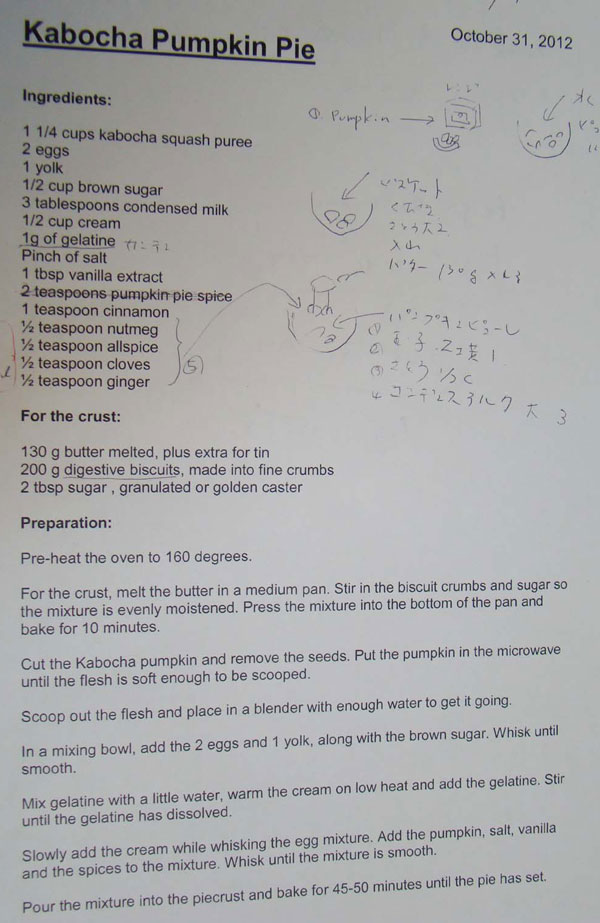 Kabocha Pumpkin Pie
October 31, 2012
Ingredients:
1 1/4 cups kabocha squash puree
2 eggs
1 yolk
1/2 cup brown sugar
3 tablespoons condensed milk
1/2 cup cream
1g of gelatine
Pinch of salt
1 tbsp vanilla extract
2 teaspoons pumpkin pie spice
1 teaspoon cinnamon
½ teaspoon nutmeg
½ teaspoon allspice
½ teaspoon cloves
½ teaspoon ginger
⑤
① Pumpkin
レンジ
ビスケット
バター 130g
パンプキンピューレ
① 玉子 2コ 黄 1
② さとう 1/2 C
コンデンスミルク 大 3
For the crust:
130 g butter melted, plus extra for tin
200 g digestive biscuits, made into fine crumbs
2 tbsp sugar , granulated or golden caster
Preparation:
Pre-heat the oven to 160 degrees.
For the crust, melt the butter in a medium pan. Stir in the biscuit crumbs and sugar so
the mixture is evenly moistened. Press the mixture into the bottom of the pan and
bake for 10 minutes.
Cut the Kabocha pumpkin and remove the seeds. Put the pumpkin in the microwave
until the flesh is soft enough to be scooped.
Scoop out the flesh and place in a blender with enough water to get it going.
In a mixing bowl, add the 2 eggs and 1 yolk, along with the brown sugar. Whisk until
smooth.
Mix gelatine with a little water, warm the cream on low heat and add the gelatine. Stir
until the gelatine has dissolved.
Slowly add the cream while whisking the egg mixture. Add the pumpkin, salt, vanilla
and the spices to the mixture. Whisk until the mixture is smooth.
Pour the mixture into the piecrust and bake for 45-50 minutes until the pie has set.